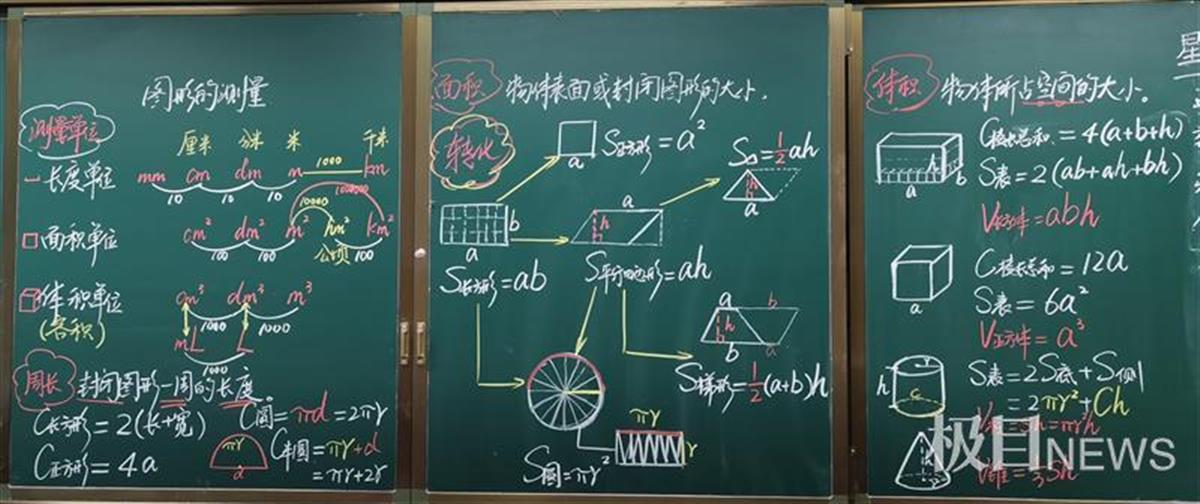 图形的测量
测量单位
厘米 分米 米 千米
长度单位 mm cm dm m 1000 km
10 10 10
1000000
10000
面积单位 cm² dm² m² hm² km²
100 100 公顷 100
体积单位 cm³ dm³ m³
(容积) 1000 1000
mL L
1000
周长 封闭图形一周的长度。
C长方形=2(长+宽)
C正方形=4a
C圆=πd=2πr
πr
d
C半圆=πr+d
=πr+2r
面积 物体表面或封闭图形的大小。
转化
a
S正方形=a²
S△=½ah
h
a
b
a
a
h
S长方形=ab
S平行四边形=ah
a b
h
b a
S梯形=½(a+b)h
πr
r
S圆=πr²
体积 物体所占空间的大小。
C棱长总和=4(a+b+h)
S表=2(ab+ah+bh)
V长方体=abh
h b
a
C棱长总和=12a
S表=6a²
V正方体=a³
a
h
c
S表=2S底+S侧
=2πr²+Ch
=πr²h
V锥=⅓Sh
星
极目NEWS